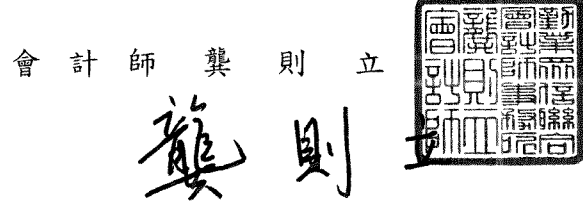 會計師 龔則立
龔則立
勤業眾信聯合
會計師事務所
龔則立
會計師